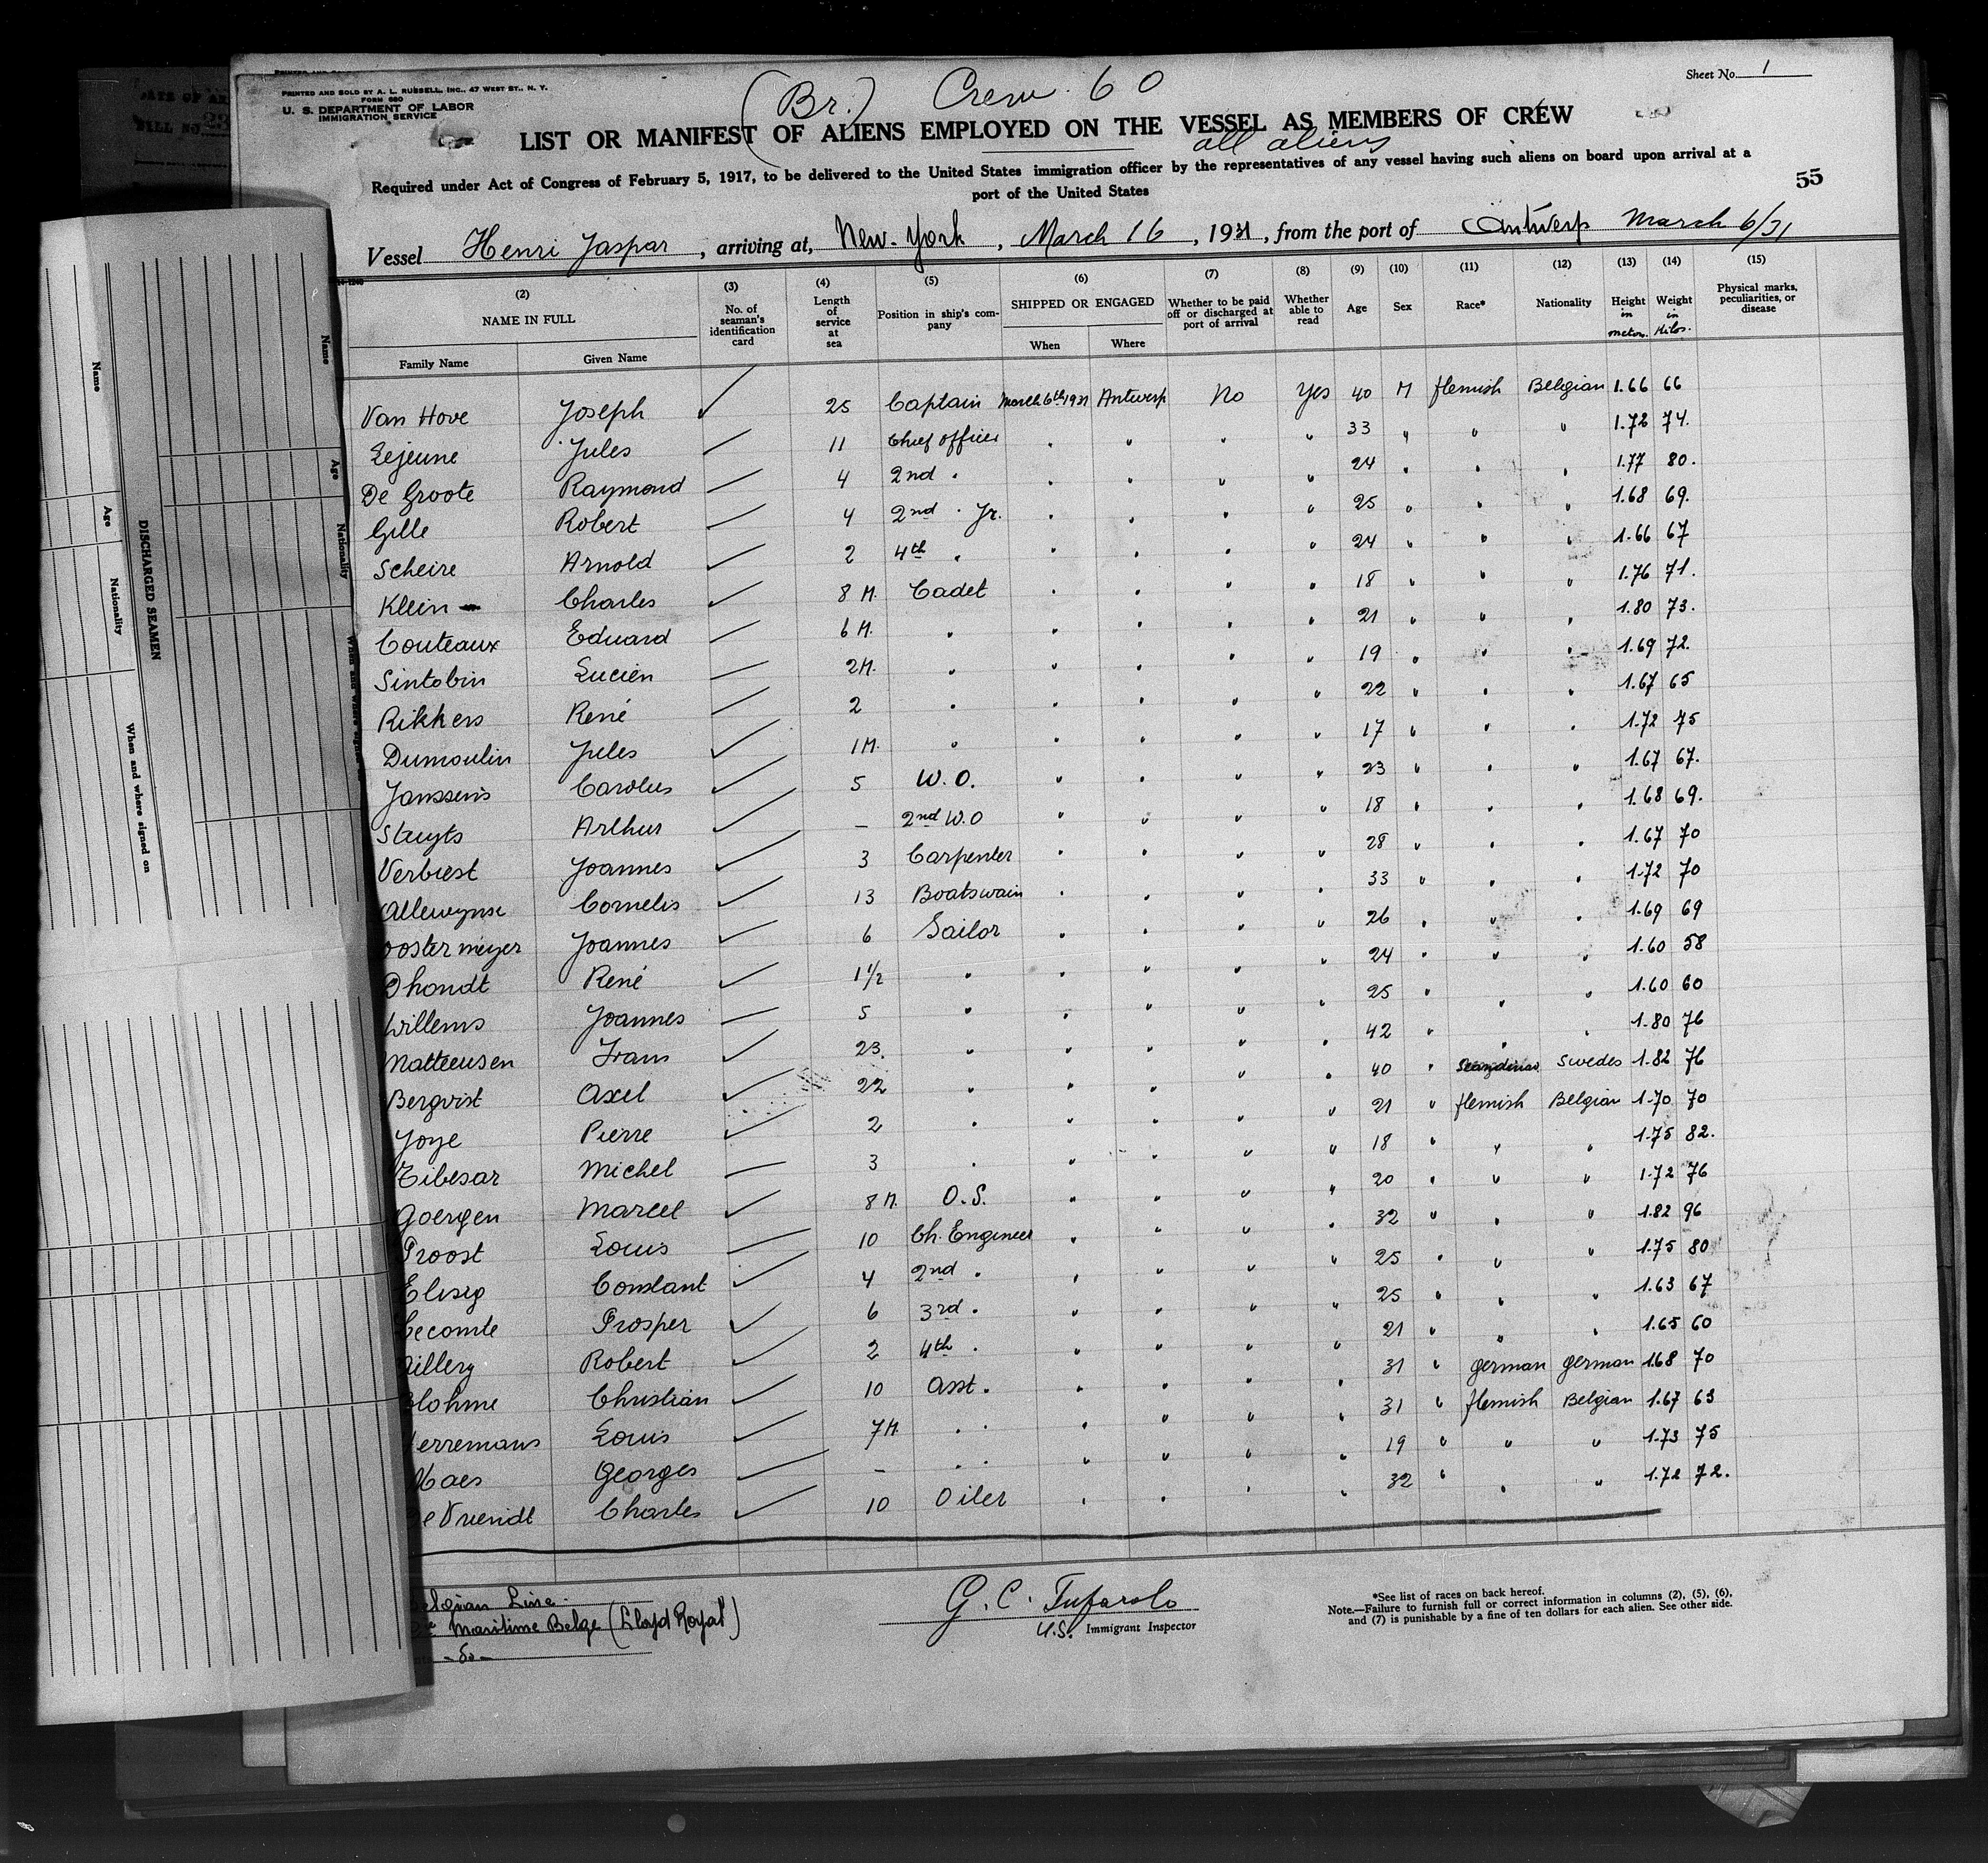 PRINTED AND SOLD BY A. L. RUSSELL, INC., 47 WEST ST., N. Y.
FORM 680
U. S. DEPARTMENT OF LABOR
IMMIGRATION SERVICE
(Br.) Crew 60
Sheet No. 1
LIST OR MANIFEST OF ALIENS EMPLOYED ON THE VESSEL AS MEMBERS OF CREW
all aliens
Required under Act of Congress of February 5, 1917, to be delivered to the United States immigration officer by the representatives of any vessel having such aliens on board upon arrival at a
port of the United States
55
Vessel Henri Jaspar, arriving at, New-York, March 16, 1931, from the port of Antwerp March 6/31
(2) (3) (4) (5) (6) (7) (8) (9) (10) (11) (12) (13) (14) (15)
NAME IN FULL No. of seaman's identification card Length of service at sea Position in ship's company SHIPPED OR ENGAGED Whether to be paid off or discharged at port of arrival Whether able to read Age Sex Race* Nationality Height in meters Weight in Kilos. Physical marks, peculiarities, or disease
Family Name Given Name When Where
Van Hove Joseph ✓ 25 Captain March 6th 1931 Antwerp No Yes 40 M flemish Belgian 1.66 66
Lejeune Jules 11 Chief officer " " " " 33 " " " 1.72 74.
De Groote Raymond 4 2nd " " " " " 24 " " " 1.77 80.
Gille Robert 4 2nd " Jr. " " " " 25 " " " 1.68 69.
Scheire Arnold ✓ 2 4th " " " " " 24 " " " 1.66 67
Klein Charles ✓ 8 M. Cadet " " " " 18 " " " 1.76 71.
Couteaux Eduard 6 M. " " " " " 21 " " " 1.80 73.
Sintobin Lucien 2 M. " " " " " 19 " " " 1.69 72.
Rikkers René 2 " " " " " 22 " " " 1.67 65
Dumoulin Jules ✓ 1 M. " " " " " 17 " " " 1.72 75
Janssens Carolus ✓ 5 W. O. " " " " 23 " " " 1.67 67.
Stuyts Arthur ✓ – 2nd W.O " " " " 18 " " " 1.68 69.
Verbiest Joannes ✓ 3 Carpenter " " " " 28 " " " 1.67 70
Allewynse Cornelis ✓ 13 Boatswain " " " " 33 " " " 1.72 70
oostermeyer Joannes ✓ 6 Sailor " " " " 26 " " " 1.69 69
Dhondt René ✓ 1 1/2 " " " " " 24 " " " 1.60 58
Willems Joannes 5 " " " " " 25 " " " 1.60 60
Matteeusen Frans ✓ 23. " " " " " 42 " " " 1.80 76
Bergvist Axel ✓ 22 " " " " " 40 " Swedes 1.82 76
Joye Pierre ✓ 2 " " " " " 21 " flemish Belgian 1.70 70
Tibesar Michel 3 " " " " " 18 " " " 1.75 82.
Goergen Marcel ✓ 8 M. O.S. " " " " 20 " " " 1.72 76
Proost Louis 10 Ch. Engineer " " " " 32 " " " 1.82 96
Elisig Constant ✓ 4 2nd " " " " " 25 " " " 1.75 80
Lecomte Prosper ✓ 6 3rd " " " " " 25 " " " 1.63 67
illery Robert ✓ 2 4th " " " " " 21 " " " 1.65 60
lohme Christian ✓ 10 Asst. " " " " 31 " german german 1.68 70
erremans Louis ✓ 7 M. " " " " " 31 " flemish Belgian 1.67 63
Maes Georges – " " " " " 19 " " " 1.73 75
e Vriendt Charles ✓ 10 Oiler " " " " 32 " " " 1.72 72.
elgian Line.
Maritime Belge (Lloyd Royal)
- do -
G. C. Tufarolo
U.S. Immigrant Inspector
*See list of races on back hereof.
Note.—Failure to furnish full or correct information in columns (2), (5), (6),
and (7) is punishable by a fine of ten dollars for each alien. See other side.
DISCHARGED SEAMEN
Name
Age
Nationality
When and where signed on
Name
Age
Nationality